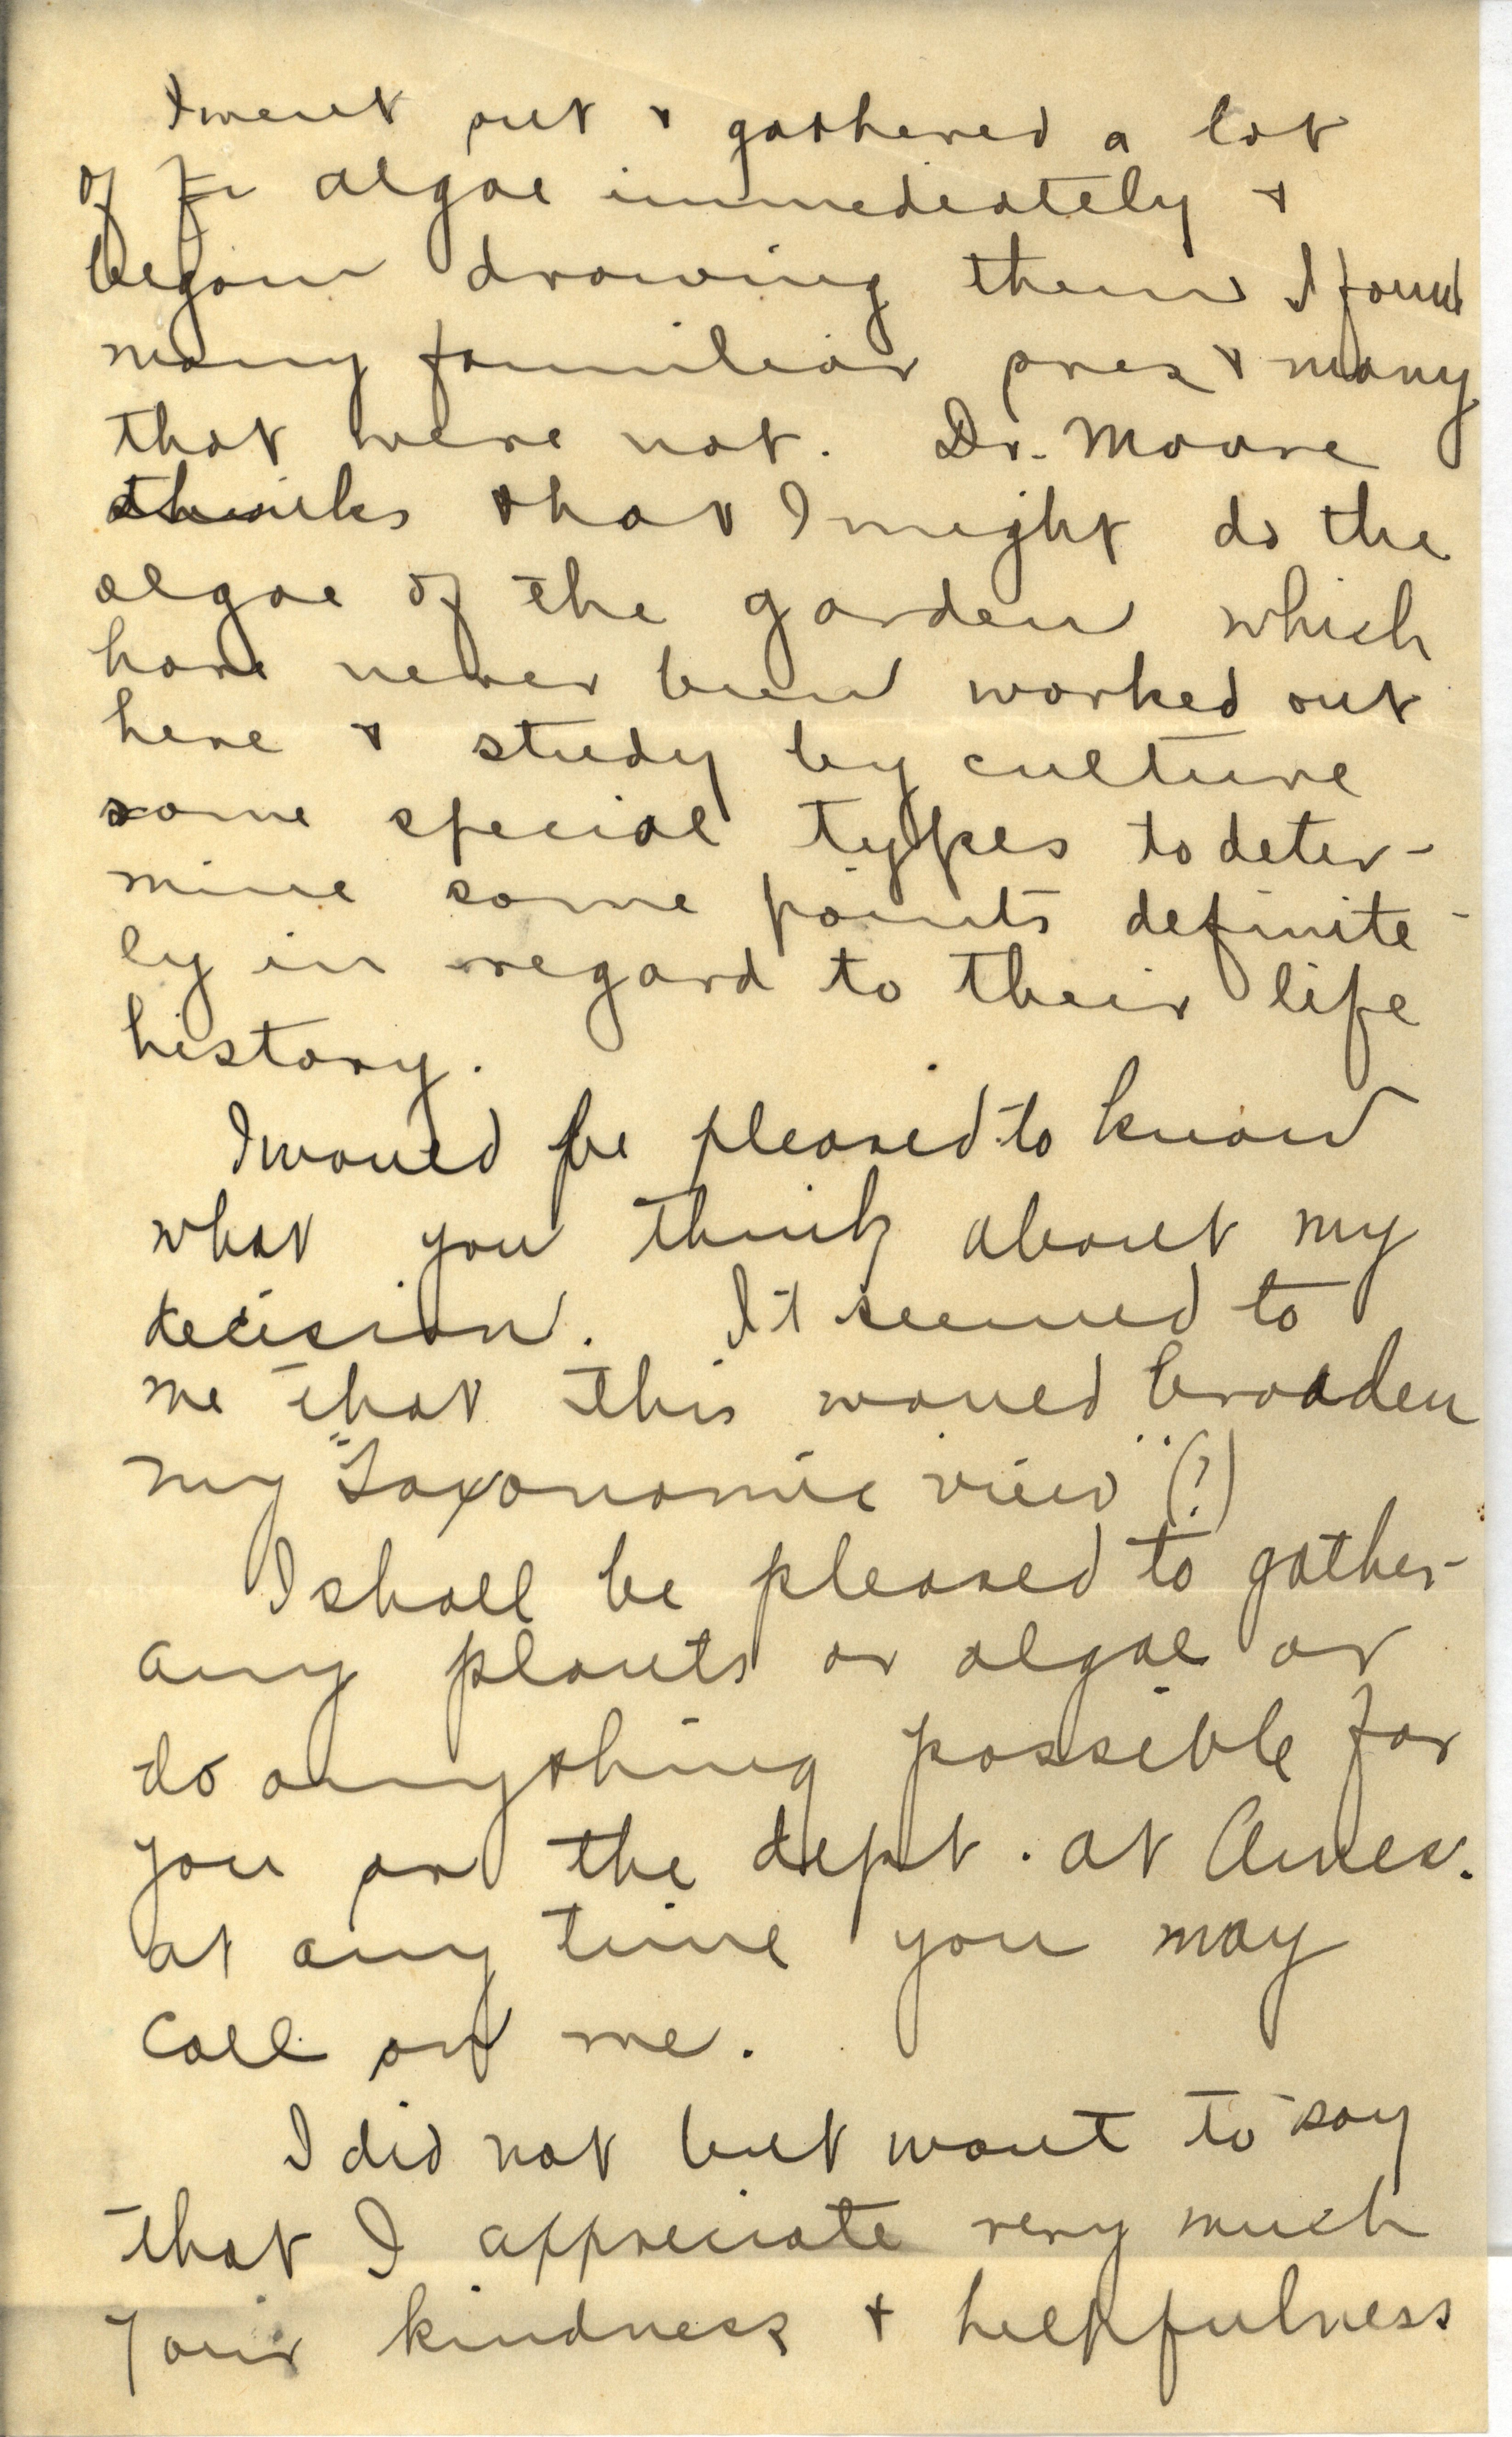 I went out & gathered a lot
of algae immediately &
began drawing them I found
many familiar ones & many
that were not. Dr. Moore
thinks that I might do the
algae of the garden which
have never been worked out
here & study by culture
some special types to deter-
mine some points definite-
ly in regard to their life
history.
I would be pleased to know
what you think about my
decision. It seemed to
me that this would broaden
my "Taxonomic view" (?)
I shall be pleased to gather
any plants or algae or
do anything possible for
you or the dept. at Ames.
at any time you may
call on me.
I did not but want to say
that I appreciate very much
your kindness & helpfulness